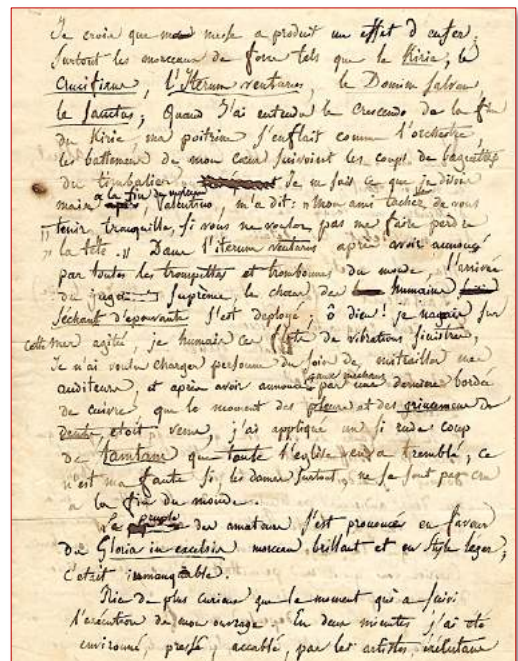 Je crois que ma messe a produit un effet d'enfer;
surtout les morceaux de force tels que le Kirie, le
Crucifixus, l'Iterum venturus, le Domine salvum,
le Sanctus; Quand j'ai entendu le Crescendo de la fin
du Kirie, ma poitrine s'enflait comme l'orchestre
les battemens de mon cœur suivoient les coups de baguettes
du timbalier. Je ne sais ce que je disois
mais à la fin du morceau, Valentino, m'a dit: " Mon ami tachez de vous
" tenir tranquille, si vous ne voulez pas me faire perdre
" la tête. " Dans l'iterum venturus après avoir annoncé
par toutes les trompettes et trombonnes du monde, l'arrivée
du juge suprême, le chœur des humains
séchant d'épouvante s'est deployé; ô dieu! je nageais sur
cette mer agitée, je humais ces flots de vibrations sinistres,
Je n'ai voulu charger personne du soin de mitrailler mes
auditeurs, et après avoir annoncé aux méchans par une dernière bordée
de cuivre, que le moment des pleurs et des grincemens de
dents, étoit venu, j'ai appliqué un si rude coup
de tamtam que toute l'église en a tremblé, ce
n'est ma faute si les dames surtout, ne se sont pas cru
à la fin du monde.
Le peuple des amateurs s'est prononcé en faveur
du Gloria in excelsis morceau brillant et en style léger;
c'était immanquable.
Rien de plus curieux que le moment qui a suivi
l'exécution de mon ouvrage. En deux minutes j'ai été
environné, pressé, accablé, par les artistes, exécutans